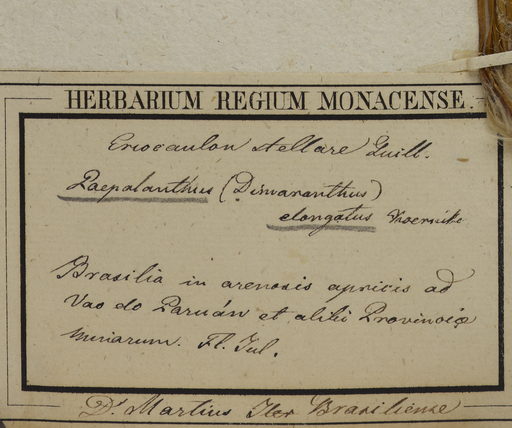 HERBARIUM REGIUM MONACENSE.
Eriocaulon stellare Guill.
Paepalanthus (Dimaranthus)
elongatus Koernike
Brasilia in arenosis apricis ad
Vao do Paruán et alibi Provinciæ
Minarum. Fl. Jul.
Dr. Martius Iter Brasiliense